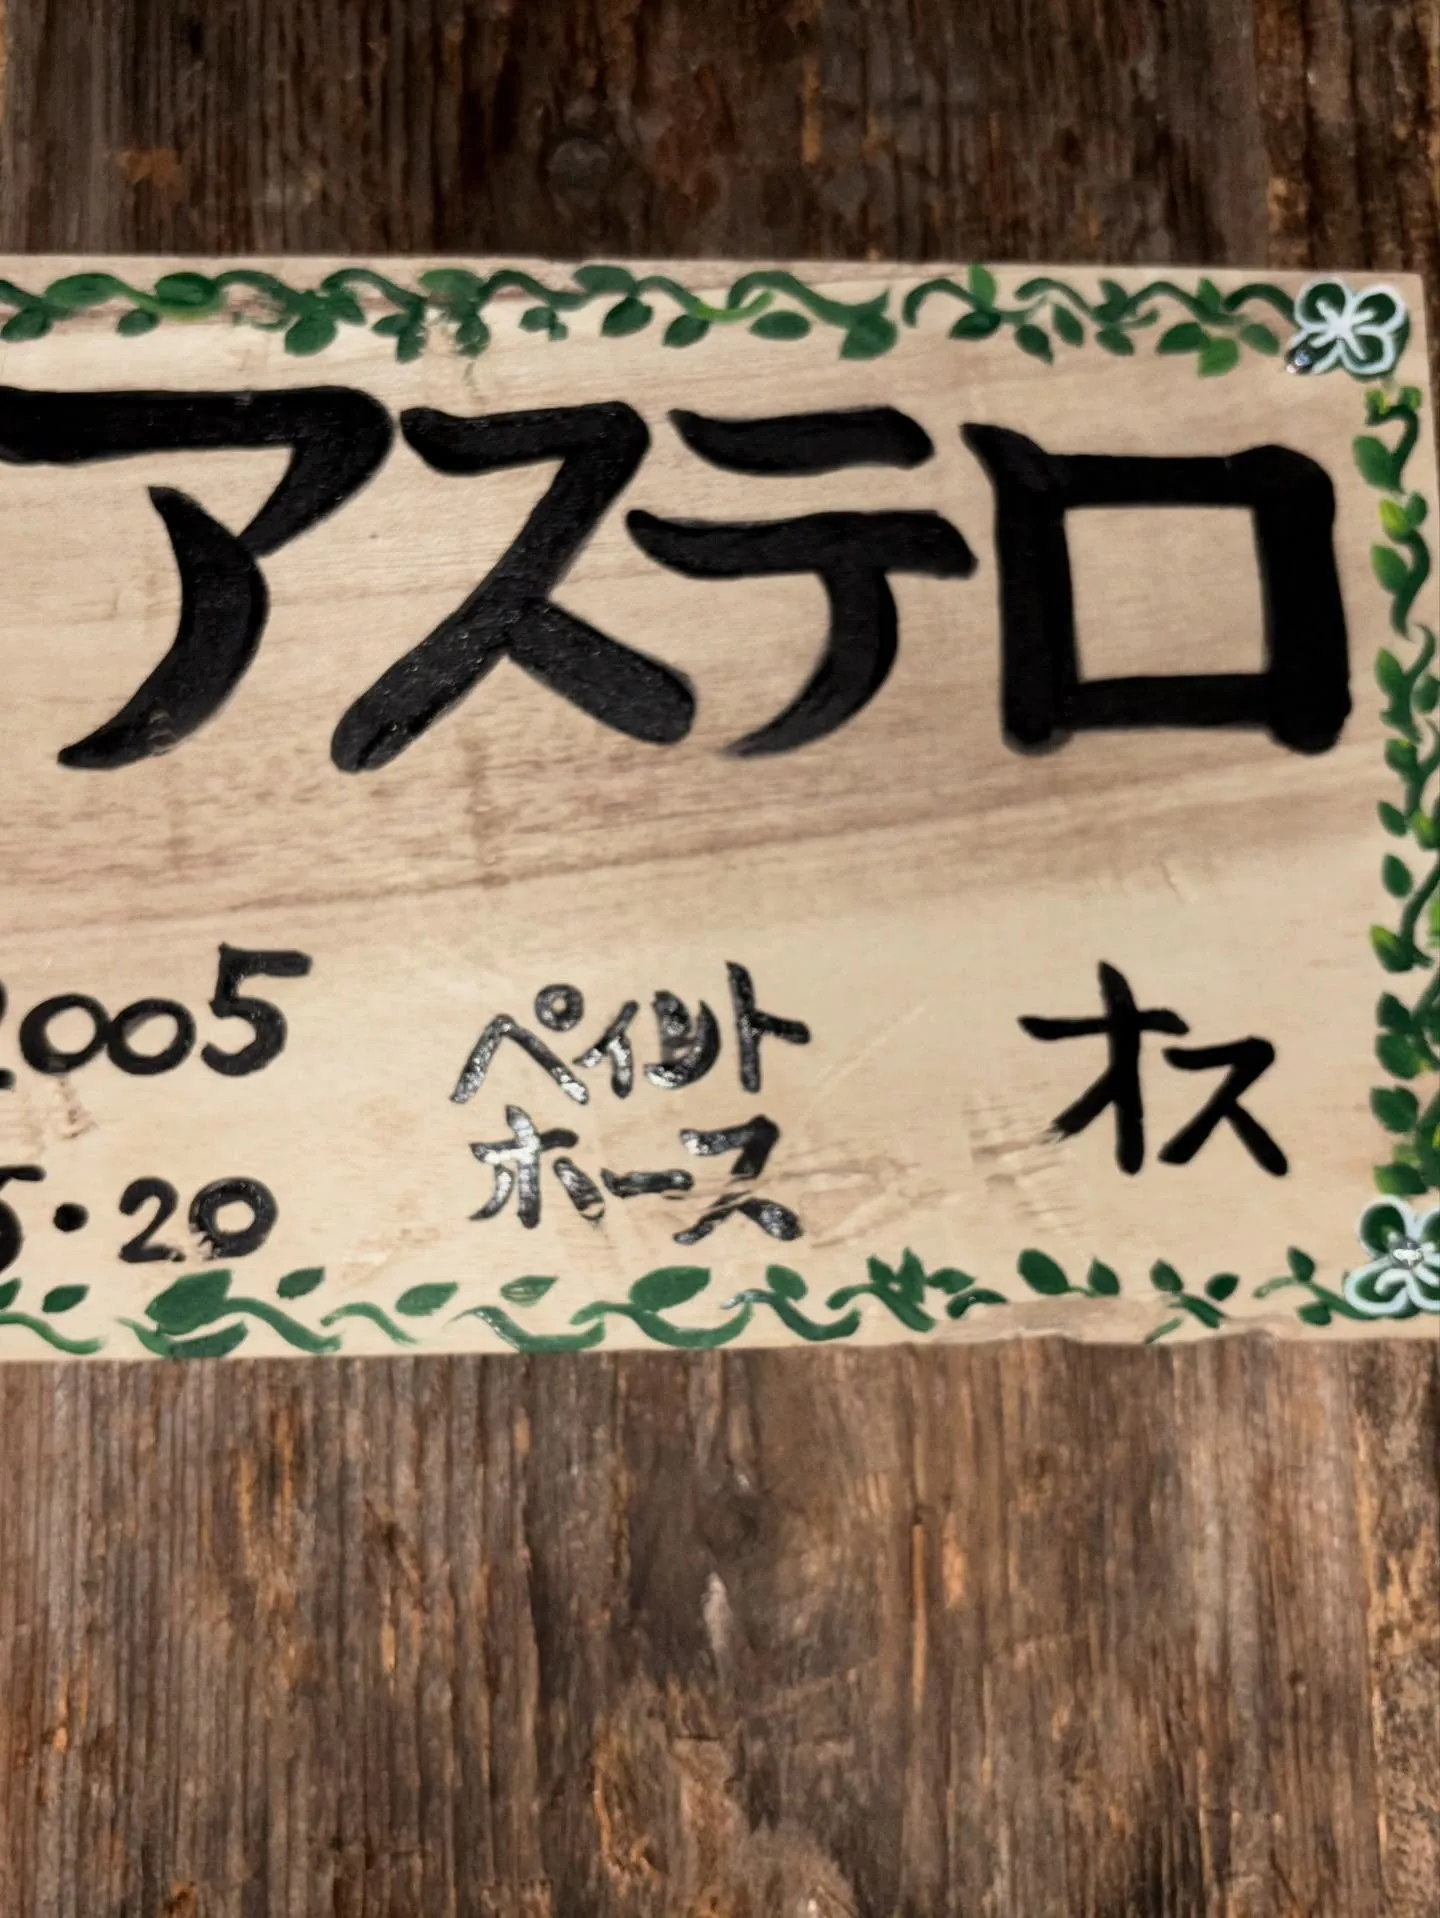 アステロ
2005 ペイント オス
5・20 ホース